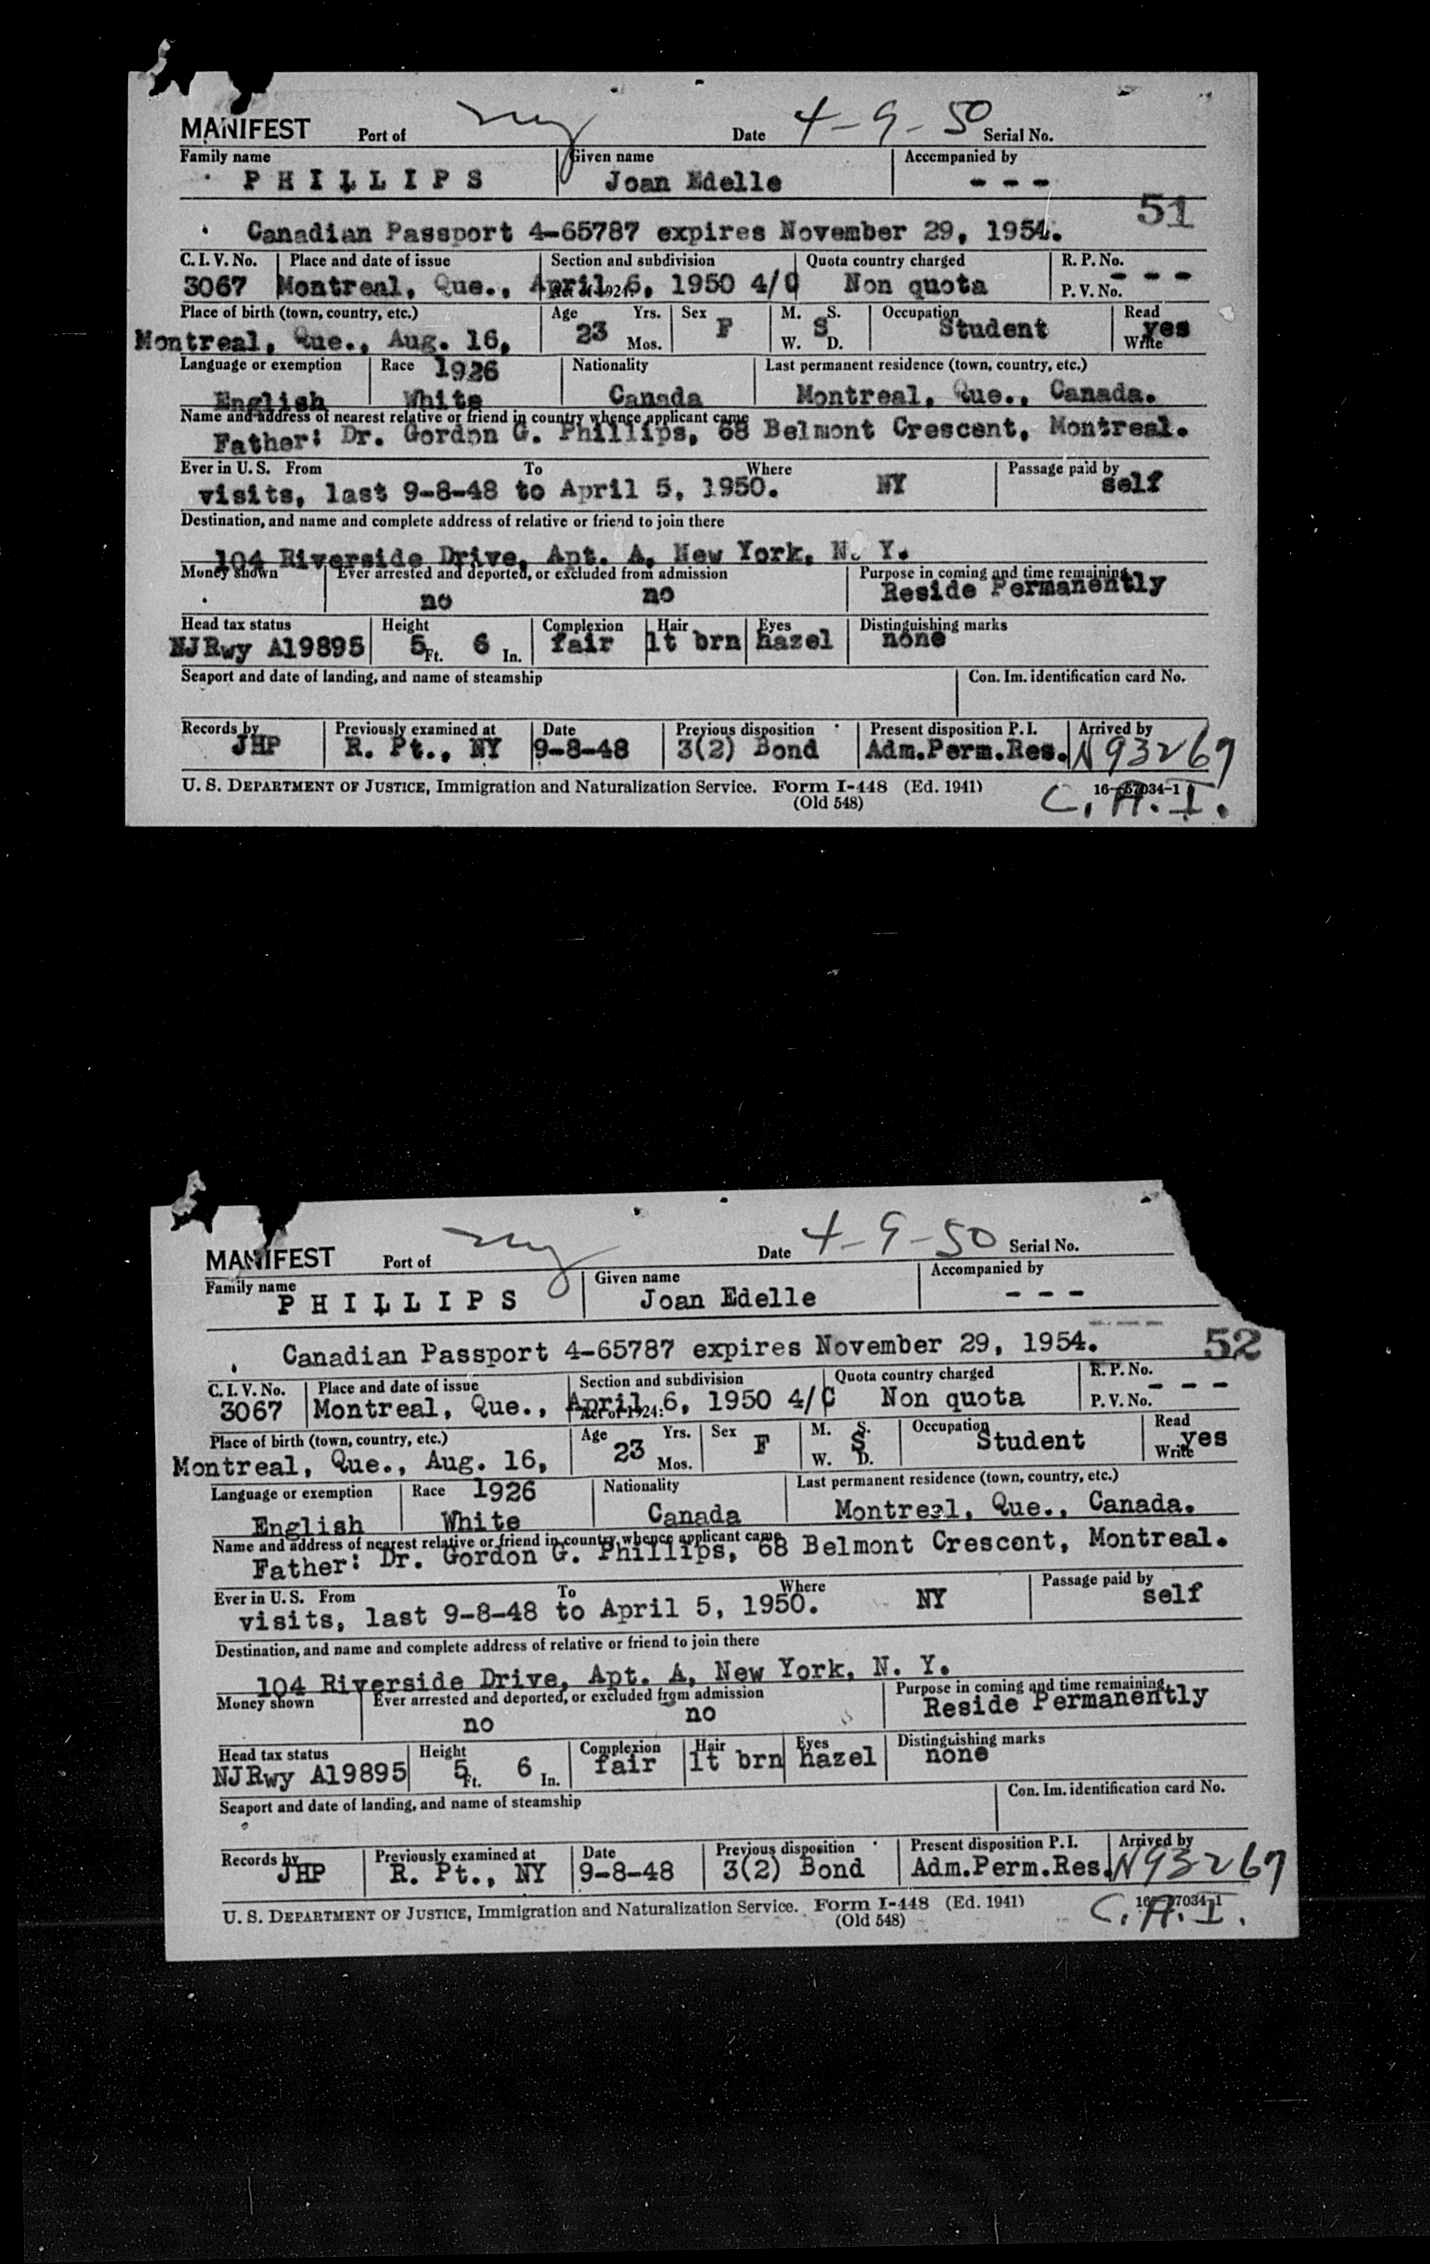 MANIFEST Port of ny Date 4-9-50 Serial No.
Family name Given name Accompanied by
PHILLIPS Joan Edelle - - -
51
Canadian Passport 4-65787 expires November 29, 1954.
C. I. V. No. Place and date of issue Section and subdivision Quota country charged R. P. No.
3067 Montreal, Que., April 6, 1950 4/C Non quota - - -
P. V. No.
Place of birth (town, country, etc.) Age Yrs. Sex M. S. Occupation Read
Montreal, Que., Aug. 16, 23 Mos. F S W. D. Student yes Write
Language or exemption Race 1926 Nationality Last permanent residence (town, country, etc.)
English White Canada Montreal, Que., Canada.
Name and address of nearest relative or friend in country whence applicant came
Father: Dr. Gordon G. Phillips, 68 Belmont Crescent, Montreal.
Ever in U. S. From To Where Passage paid by
visits, last 9-8-48 to April 5, 1950. NY self
Destination, and name and complete address of relative or friend to join there
104 Riverside Drive, Apt. A, New York, N. Y.
Money shown Ever arrested and deported, or excluded from admission Purpose in coming and time remaining
no no Reside Permanently
Head tax status Height Complexion Hair Eyes Distinguishing marks
NJRwy A19895 5 Ft. 6 In. fair lt brn hazel none
Seaport and date of landing, and name of steamship Con. Im. identification card No.
Records by Previously examined at Date Previous disposition Present disposition P. I. Arrived by
JHP R. Pt., NY 9-8-48 3(2) Bond Adm.Perm.Res. N93267
U. S. DEPARTMENT OF JUSTICE, Immigration and Naturalization Service. Form I-448 (Ed. 1941) 16-57034-1
(Old 548) C.A.I.
MANIFEST Port of ny Date 4-9-50 Serial No.
Family name Given name Accompanied by
PHILLIPS Joan Edelle - - -
Canadian Passport 4-65787 expires November 29, 1954. 52
C. I. V. No. Place and date of issue Section and subdivision Quota country charged R. P. No.
3067 Montreal, Que., April 6, 1950 4/C Non quota - - -
Act of 1924: P. V. No.
Place of birth (town, country, etc.) Age Yrs. Sex M. S. Occupation Read
Montreal, Que., Aug. 16, 23 Mos. F S W. D. Student yes Write
Language or exemption Race 1926 Nationality Last permanent residence (town, country, etc.)
English White Canada Montreal, Que., Canada.
Name and address of nearest relative or friend in country whence applicant came
Father: Dr. Gordon G. Phillips, 68 Belmont Crescent, Montreal.
Ever in U. S. From To Where Passage paid by
visits, last 9-8-48 to April 5, 1950. NY self
Destination, and name and complete address of relative or friend to join there
104 Riverside Drive, Apt. A, New York, N. Y.
Money shown Ever arrested and deported, or excluded from admission Purpose in coming and time remaining
no no Reside Permanently
Head tax status Height Complexion Hair Eyes Distinguishing marks
NJRwy A19895 5 Ft. 6 In. fair lt brn hazel none
Seaport and date of landing, and name of steamship Con. Im. identification card No.
Records by Previously examined at Date Previous disposition Present disposition P. I. Arrived by
JHP R. Pt., NY 9-8-48 3(2) Bond Adm.Perm.Res. N93267
U. S. DEPARTMENT OF JUSTICE, Immigration and Naturalization Service. Form I-448 (Ed. 1941)
(Old 548) C.A.I.